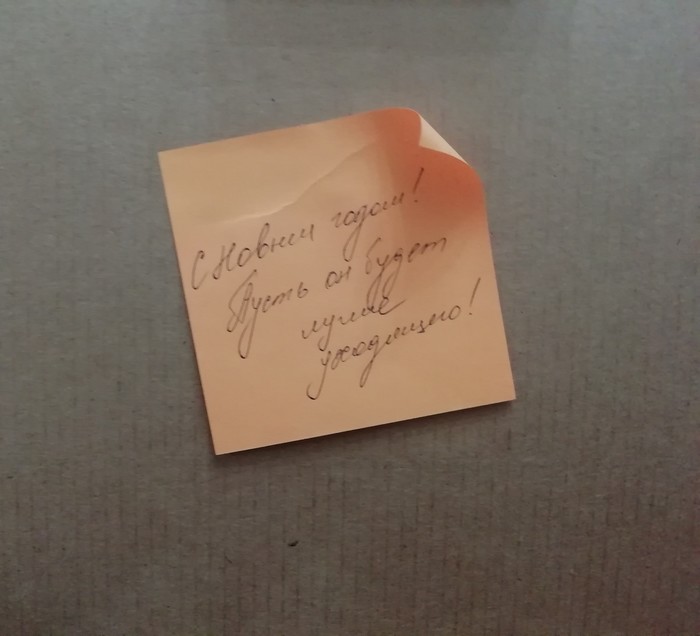 С Новым годом!
Пусть он будет
лучше
уходящего!